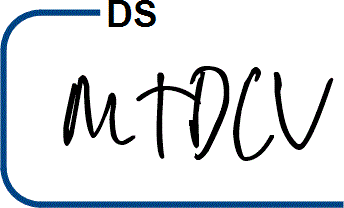 DS
MTDCV